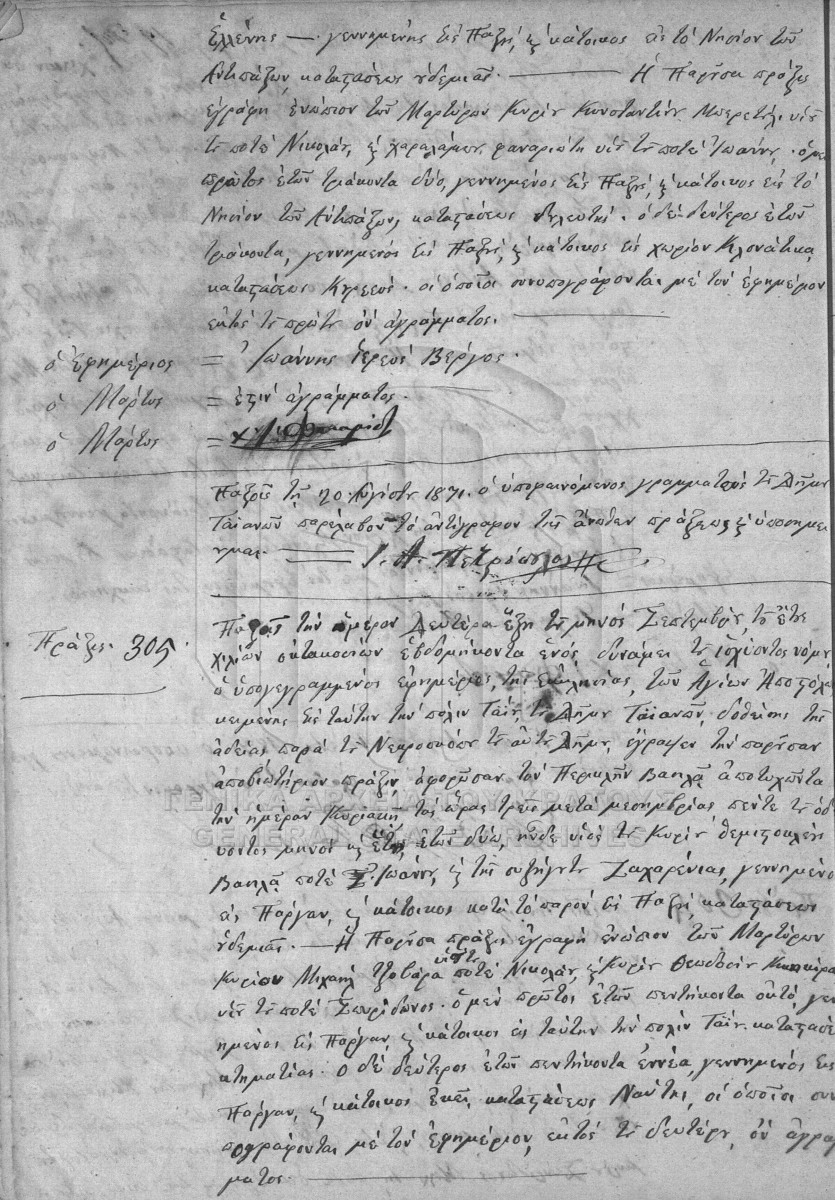 Ἑλλένης — . γεννημένης εἰς Παξούς, καὶ κάτοικος εἰς τὸ Νησίον τῶν
Ἀντιπάξων, καταστάσεως οὐδεμιᾶς. — Ἡ Παροῦσα πράξις
ἐγράφη ἐνώπιον τῶν Μαρτύρων Κυρίου Κωνσταντίνου υἱοῦ
τοῦ ποτὲ Νικολάου, καὶ Χαραλάμπους φαναριώτη υἱοῦ τοῦ ποτὲ Ἰωάννου. ὁ μὲν
πρῶτος ἐτῶν τριάκοντα δύο, γεννημένος εἰς Παξούς, καὶ κάτοικος εἰς τὸ
Νησίον τῶν Ἀντιπάξων, καταστάσεως δουλευτής. ὁ δὲ δεύτερος ἐτῶν
τριάκοντα, γεννημένος εἰς Παξούς, καὶ κάτοικος εἰς χωρίον
καταστάσεως. οἱ ὁποῖοι συνυπογράφονται μὲ τὸν ἐφημέριον
ἐκτὸς τοῦ πρώτου ὂν ἀγράμματος.
ὁ Ἐφημέριος = Ἰωάννης ἱερεὺς Βεργος.
ὁ Μάρτυς = ἀγράμματος.
ὁ Μάρτυς =
Παξοῖς τῇ 20 Αὐγούστου 1871. ὁ ὑποφαινόμενος γραμματεὺς τοῦ Δήμου
Γαϊανῶν παρέλαβον τὸ ἀντίγραφον τῆς ἄνωθεν πράξεως καὶ ὑποσημει
οῦμαι.
Πράξις. 305.
Παξοῖς τὴν ἡμέραν Δευτέρα ἕξη τοῦ μηνὸς Σεπτεμβρίου τοῦ ἔτους
χιλίων ὀκτακοσίων ἑβδομήκοντα ἑνὸς, δυνάμει τοῦ ἰσχύοντος νόμου
ὁ ὑπογεγραμμένος ἐφημέριος, τῆς ἐκκλησίας, τῶν Ἁγίων Ἀποστόλων
κειμένης εἰς ταύτην τὴν πόλιν Γάϊου, τοῦ Δήμου Γαϊανῶν, δοθείσης τῆς
ἀδείας παρὰ τοῦ Νεκροσκόπου τοῦ αὐτοῦ Δήμου, ἔγραψεν τὴν παροῦσαν
ἀποβιωτήριον πράξιν, ἀφοροῦσαν τὸν Περικλῆν Βασιλᾶ ἀποτυχῶντα
τὴν ἡμέραν Κυριακὴ τὰς ὥρας τρεῖς μετὰ μεσημβρίας πέντε τοῦ ὁδ
υοντος μηνὸς καὶ ἔτους, ἐτῶν δύω, υἱὸς τοῦ Κυρίου Θεμιστοκλέους
Βασιλᾶ ποτὲ Ἰωάννου, καὶ τῆς συζήγου του Ζαχαρένιας, γεννημένο
εἰς Πάργαν, καὶ κάτοικος κατὰ τὸ παρὸν εἰς Παξούς, καταστάσεως
οὐδεμιᾶς. — Ἡ Παροῦσα πράξις ἐγράφη ἐνώπιον τῶν Μαρτύρων
Κυρίου Μιχαὴλ Τζοβαρα υἱοῦ τοῦ ποτὲ Νικολάου, καὶ Κυρίου Θεοδοσίου
υἱοῦ τοῦ ποτὲ Σπυρίδωνος. ὁ μὲν πρῶτος ἐτῶν πεντήκοντα ὀκτὸ, γεν
ημένος εἰς Πάργαν, καὶ κάτοικος εἰς ταύτην τὴν πόλιν Γάϊου. καταστάσε
κτηματίας. Ὁ δὲ δεύτερος ἐτῶν πεντήκοντα ἐννέα, γεννημένος εἰς
Πάργαν, καὶ κάτοικος ἐκεῖ, καταστάσεως Ναύτης, οἱ ὁποῖοι συν
υπογράφονται μὲ τὸν ἐφημέριον, ἐκτὸς τοῦ δευτέρου, ὂν ἀγράμ
ματος.
ΓΕΝΙΚΑ ΑΡΧΕΙΑ ΤΟΥ ΚΡΑΤΟΥΣ
GENERAL STATE ARCHIVES